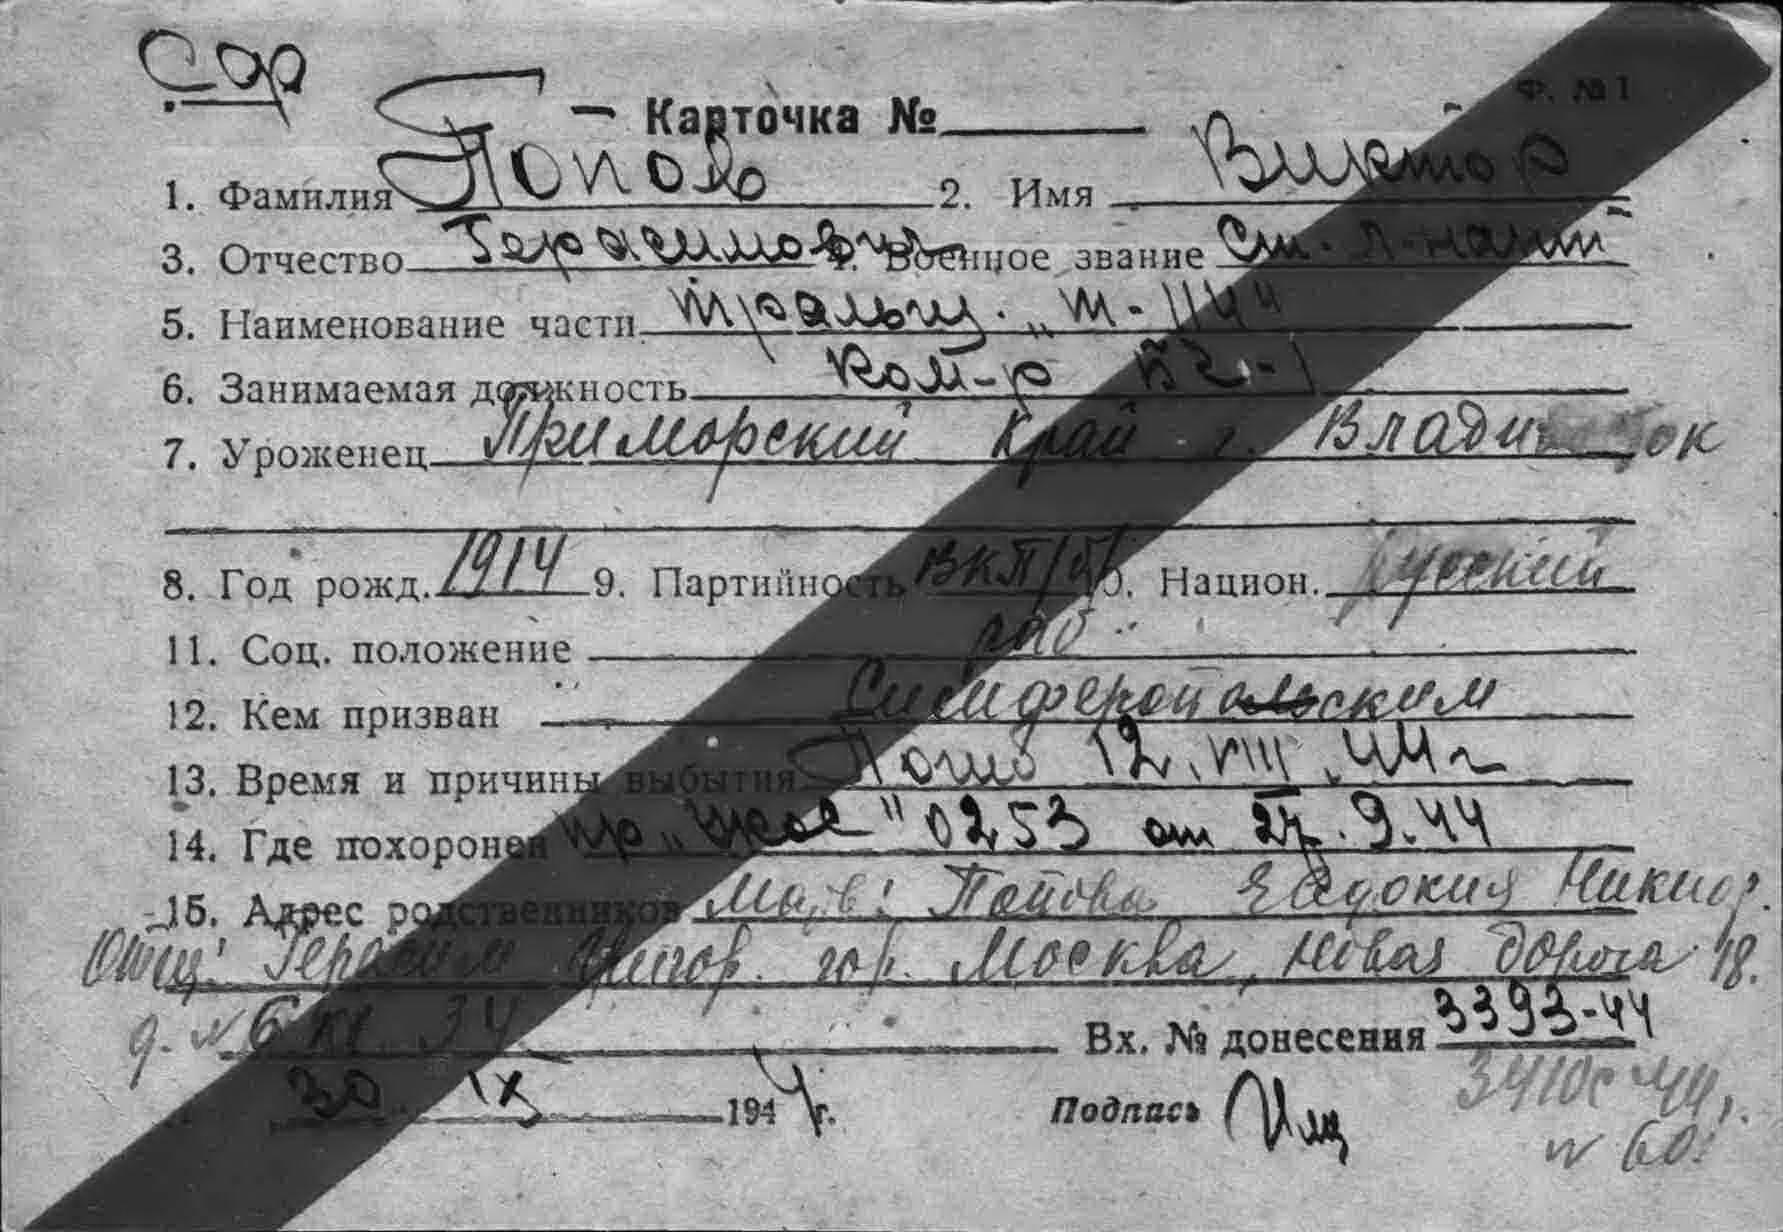 Сдр
Ф. № 1
Карточка №
1. Фамилия Попов 2. Имя Виктор
3. Отчество Герасимович 4. Военное звание Ст. л-нант
5. Наименование части тральщ. „Т-114"
6. Занимаемая должность Ком-р БЧ-1
7. Уроженец Приморский край г. Владивосток
8. Год рожд. 1914 9. Партийность ВКП/б/ 10. Национ. русский
11. Соц. положение раб
12. Кем призван Симферопольским
13. Время и причины выбытия Погиб 12.VIII.44 г
14. Где похоронен пр 0253 от 27.9.44
15. Адрес родственников Мать: Попова Евдокия Никиф.
Отец: Герасим Григор. гор. Москва, Новая дорога 18.
д. № 6 кв 34
Вх. № донесения 3393-44
30 IX 1944 г. Подпись